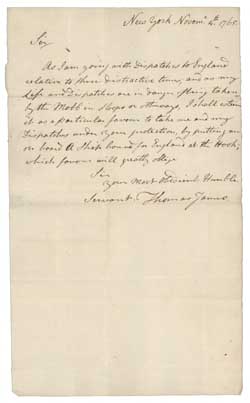 New York Novemr. 4th. 1765
Sir
As I am going with Dispatches to England
relative to these distractive times, and as my
Life and Dispatches are in danger of being taken
by the Mobb in Sloops or otherways, I shall esteem
it as a particular favour to take me and my
Dispatches under your protection, by putting me
on board A Ship bound for England at the Hook;
which favour will greatly oblige
Sir
Your Most Obedient Humble
Servant, Thomas James